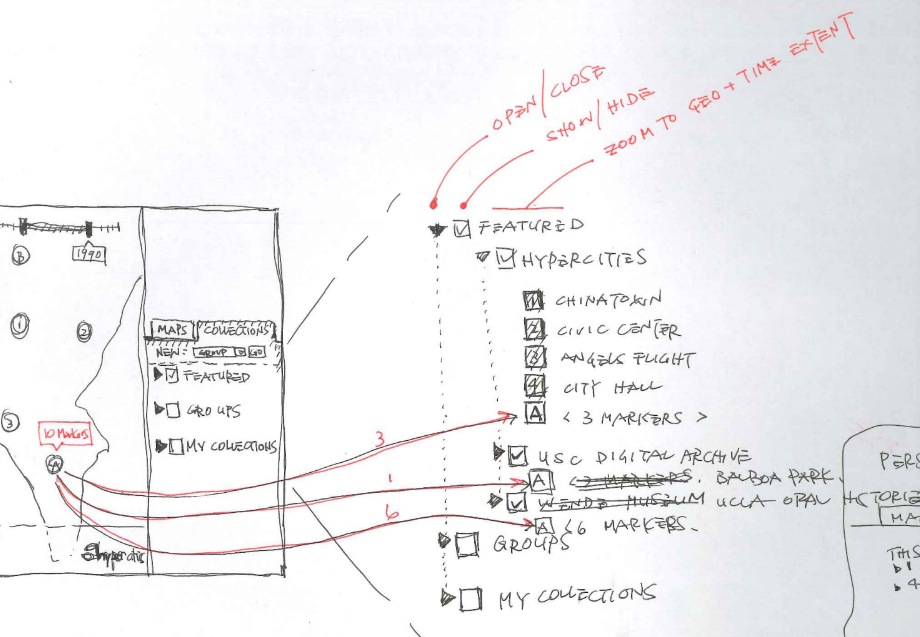 OPEN/CLOSE
SHOW/HIDE
ZOOM TO GEO + TIME EXTENT
1990
B
1
2
3
MAPS COLLECTIONS
NEW: GROUP GO
FEATURED
GROUPS
MY COLLECTIONS
10 MARKERS
hypercities
3
1
6
FEATURED
HYPERCITIES
1 CHINATOWN
2 CIVIC CENTER
3 ANGELS FLIGHT
4 CITY HALL
A < 3 MARKERS >
USC DIGITAL ARCHIVE
A < 3 MARKERS. BALBOA PARK.
WENDE MUSEUM UCLA ORAL HISTORIES
A < 6 MARKERS.
GROUPS
MY COLLECTIONS
PERS
MA
THIS
1
4